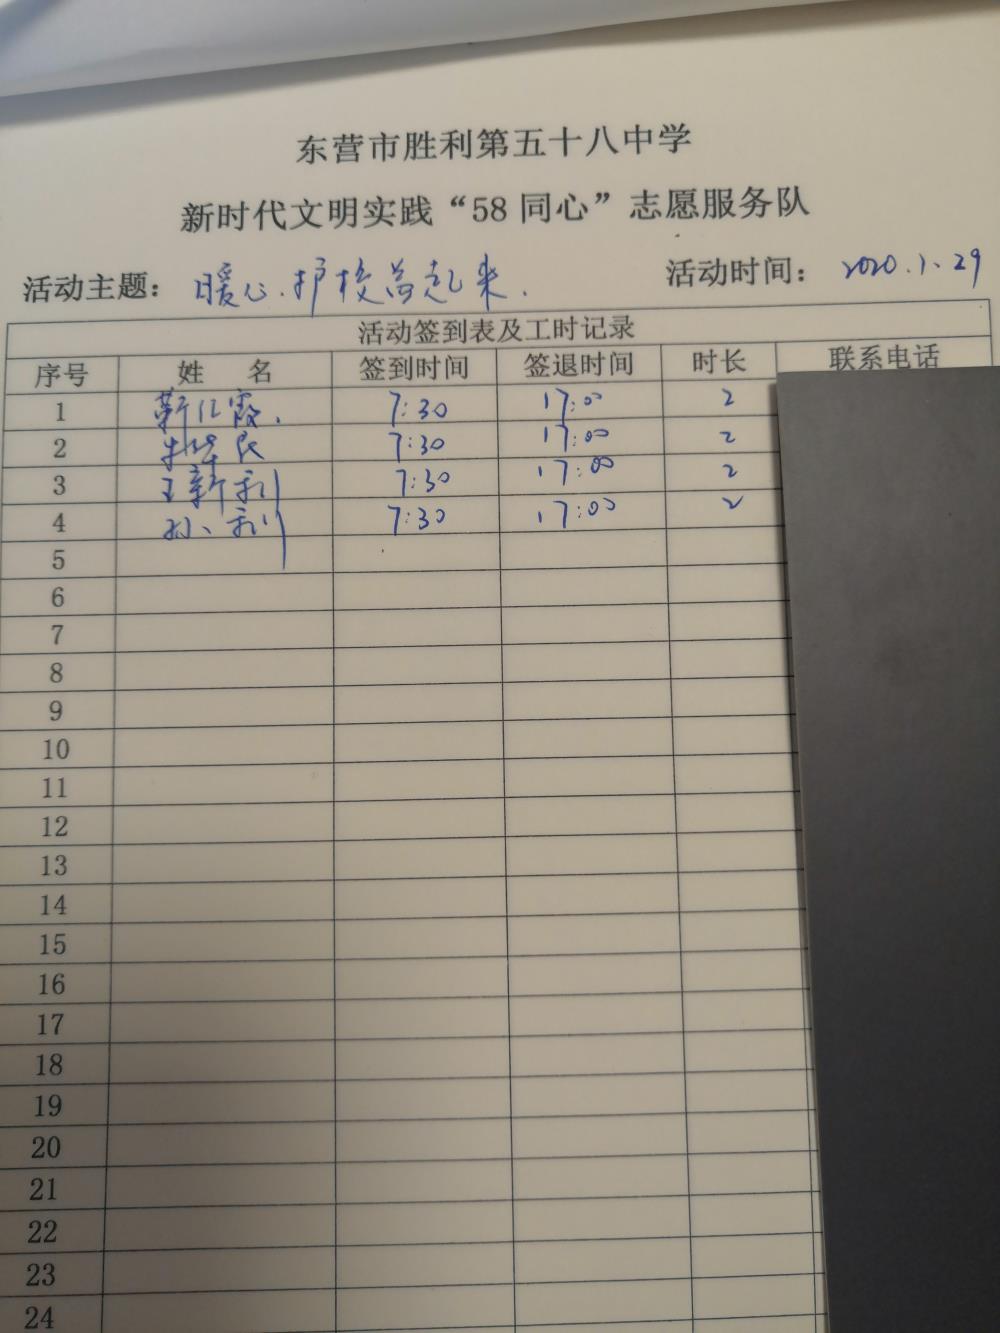 东营市胜利第五十八中学
新时代文明实践“58同心”志愿服务队
活动主题： 暖心.护校当起来. 活动时间： 2020.1.29
活动签到表及工时记录
序号 姓 名 签到时间 签退时间 时长 联系电话
1 靳红霞. 7:30 17:00 2
2 7:30 17:00 2
3 王新利 7:30 17:00 2
4 孙利 7:30 17:00 2
5
6
7
8
9
10
11
12
13
14
15
16
17
18
19
20
21
22
23
24